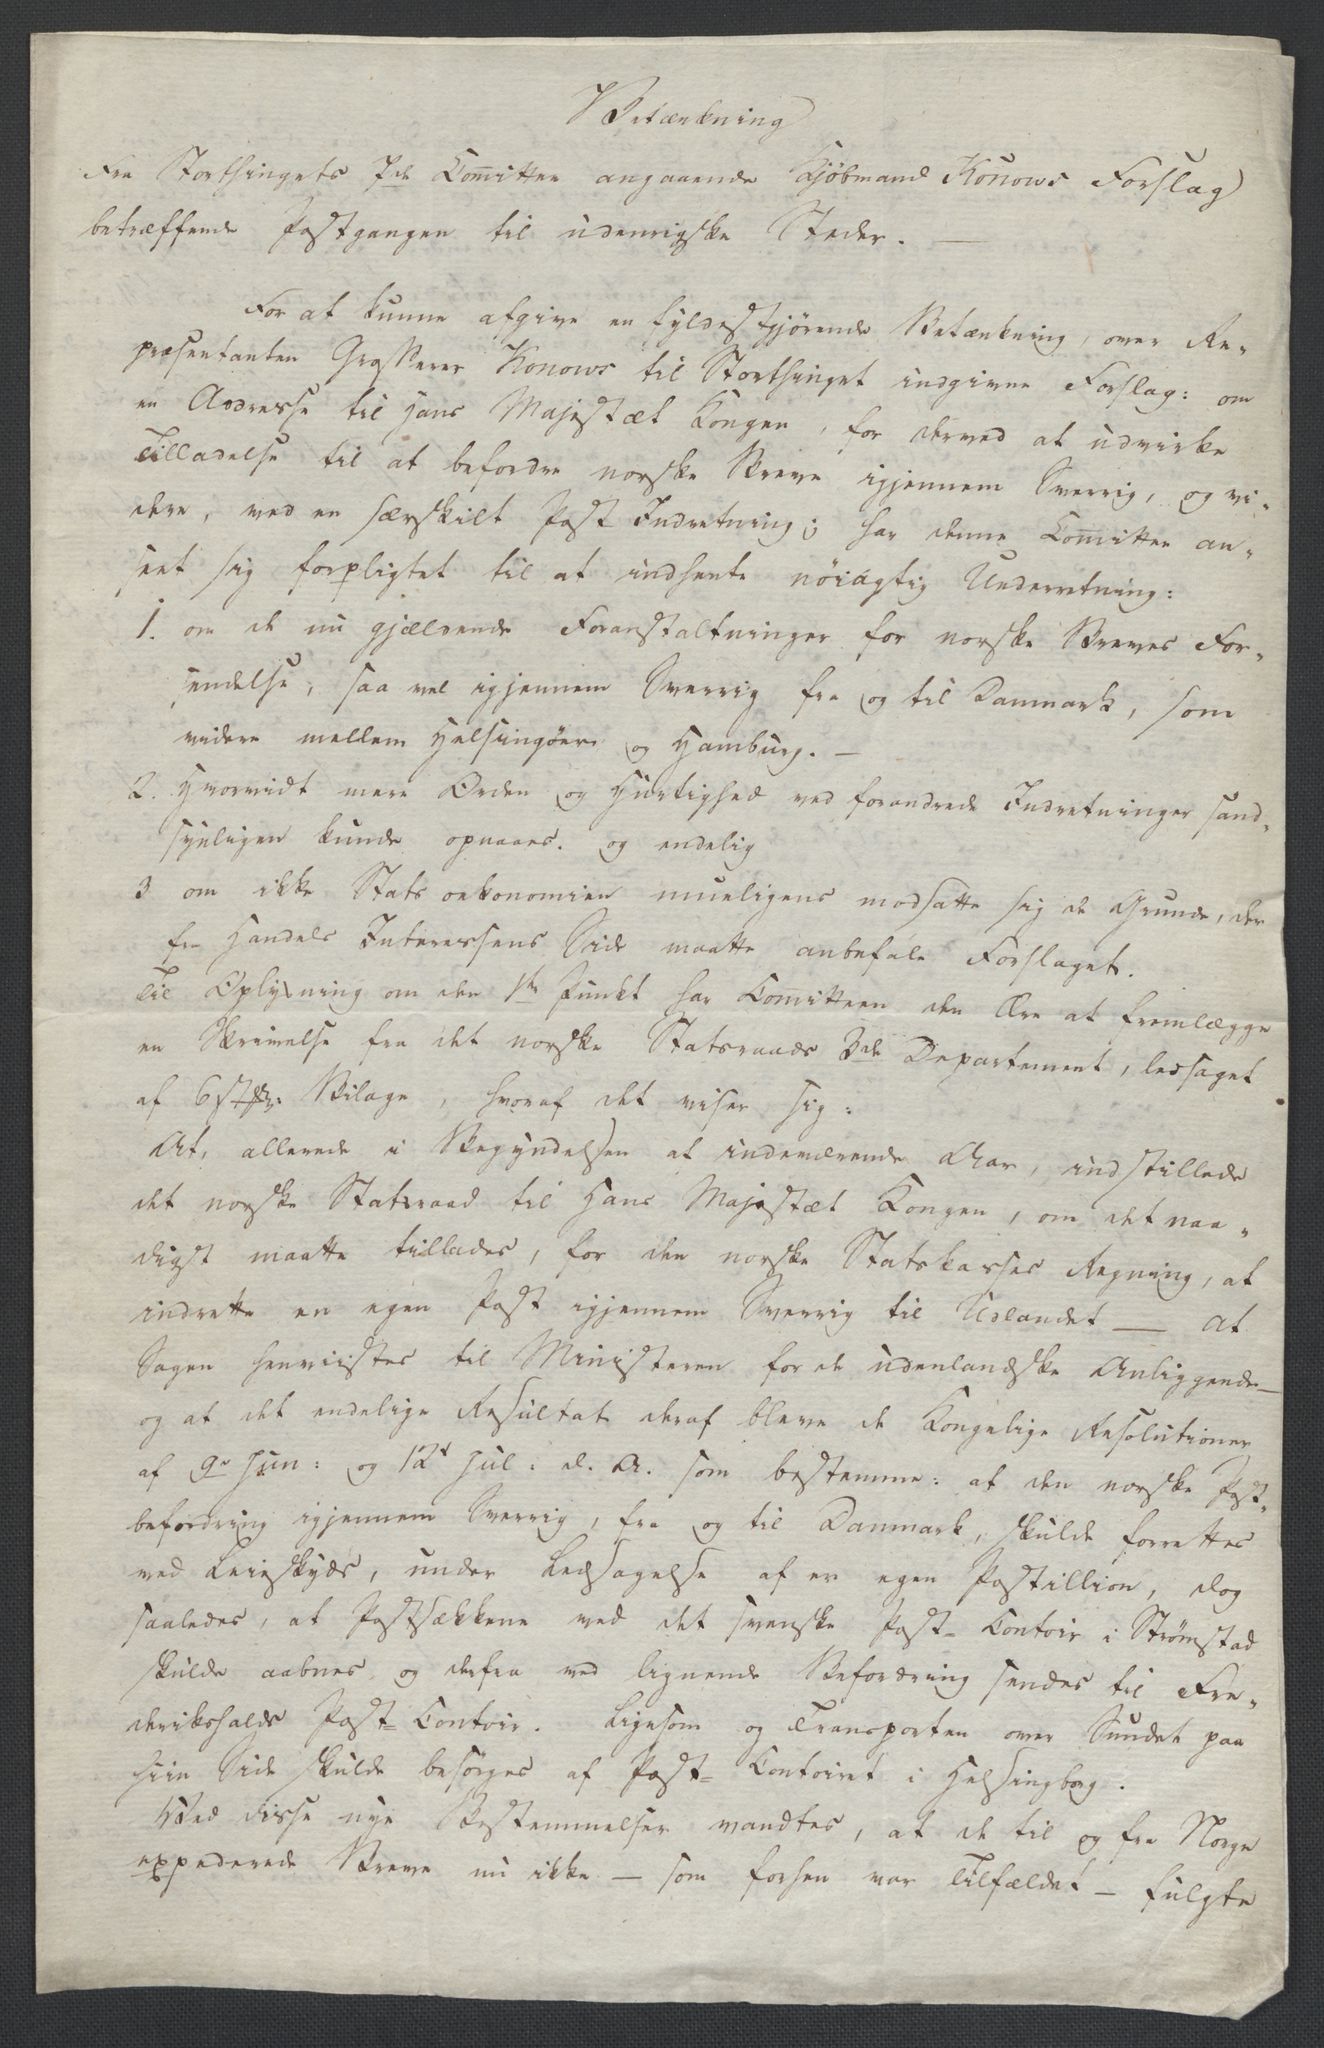 Betænkning
Fra Storthingets 7de Com̄ittee angaaende Kjöbmand Konows Forslag
betræffende Postgangen til udenrigske Steder. —
For at kunne afgive en fyldestgjörende Betænkning, over Re-
præsentanten Grosserer Konows til Storthinget indgivne Forslag: om
en Addresse til Hans Majestæt Kongen, for derved at udvirke
Tilladelse til at befordre norske Breve igjennem Sverrig, og vi-
dere, ved en særskilt Post Indretning; har denne Com̄ittee an-
seet sig forpligtet til at indhente nöiagtig Underretning:
1. om de nu gjældende Foranstaltninger for norske Breves For-
sendelse, saa vel igjennem Sverrig fra og til Danmark, som
videre mellem Helsingöer og Hamburg. —
2. Hvorvidt mere Orden og Hurtighed ved forandrede Indretninger sand-
synligen kunde opnaaes. og endelig
3 om ikke Stats oekonomien mueligens modsatte sig de Grunde, der
fra Handels Interessens Side maatte anbefale Forslaget.
Til Oplysning om den 1ste Punkt har Com̄itteen den Ære at fremlægge
en Skrivelse fra det norske Statsraads 3de Departement, ledsaget
af 6 stkr: Bilage, hvoraf det viser sig:
At, allerede i Begyndelsen af indeværende Aar, indstillede
det norske Statsraad til Hans Majestæt Kongen, om det naa-
digst maatte tillades, for den norske Statskasses Regning, at
indrette en egen Post igjennem Sverrig til Udlandet — at
Sagen henviistes til Ministeren for de udenlandske Anliggender —
og at det endelige Resultat deraf bleve de Kongelige Resolutioner
af 9de Jun: og 12t Jul: d. A. som bestemme: at den norske Post-
befordring igjennem Sverrig, fra og til Danmark, skulde forrettes
ved Leieskyds, under Ledsagelse af en egen Postillion, dog
saaledes, at Postsækkene ved det svenske Post-Contoir i Strömstad
skulde aabnes og derfra ved lignende Befordring sendes til Fre-
derikshalds Post-Contoir. Ligesom og Transporten over Sundet paa
hiin Side skulde besörges af Post-Contoiret i Helsingborg.
Ved disse nye Bestemmelser vandtes, at de til og fra Norge
expederede Breve nu ikke — som forhen var Tilfældet — fulgte